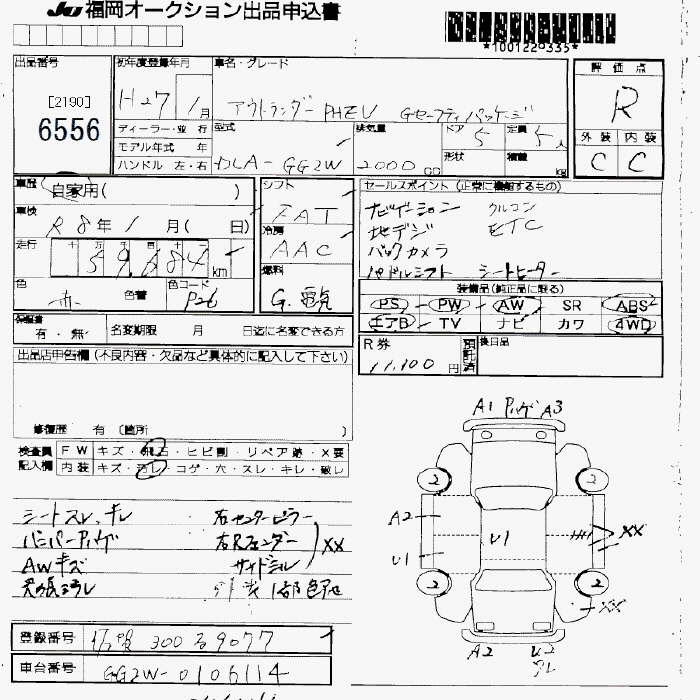 JU 福岡オークション出品申込書
*100122@335*
出品番号
[2190]
6556
初年度登録年月
H27 / 1月
車名・グレード
アウトランダー PHEV Gセーフティパッケージ
評価点
R
外装 内装
C C
ディーラー・並行
モデル年式 年
ハンドル 左・右
型式
DLA-GG2W
排気量
2000 CC
ドア 5
形状
定員 5人
積載 kg
車歴 自家用( )
車検
R8年 1月( 日)
走行
十 万 千 百 十 一
59,684 km
色
赤
色替
色コード
P26
シフト
FAT
冷房
AAC
燃料
G.電気
セールスポイント (正常に機能するもの)
ナビゲーション クルコン
地デジ ETC
バックカメラ
パドルシフト シートヒーター
装備品(純正品に限る)
PS PW AW SR ABS
エアB TV ナビ カワ 4WD
保証書
有・無
名変期限 月 日迄に名変できる方
R券
11,100円
預託済
後日品
出品店申告欄(不良内容・欠品など具体的に記入して下さい)
修復歴 有 (箇所 )
検査員記入欄
FW キズ・飛石・ヒビ割・リペア跡・X要
内装 キズ・汚レ・コゲ・穴・スレ・キレ・破レ
シートスレ、キレ 右センターピラー
バンパーアゲキズ 右Rフェンダー XX
AWキズ サイドシル
天張汚レ 外装1部色アセ
A1 A3
2 2
A2 U1 XX
U1
2 2
XX
A2 U2
登録番号 300 る 9077
車台番号 GG2W-0106114